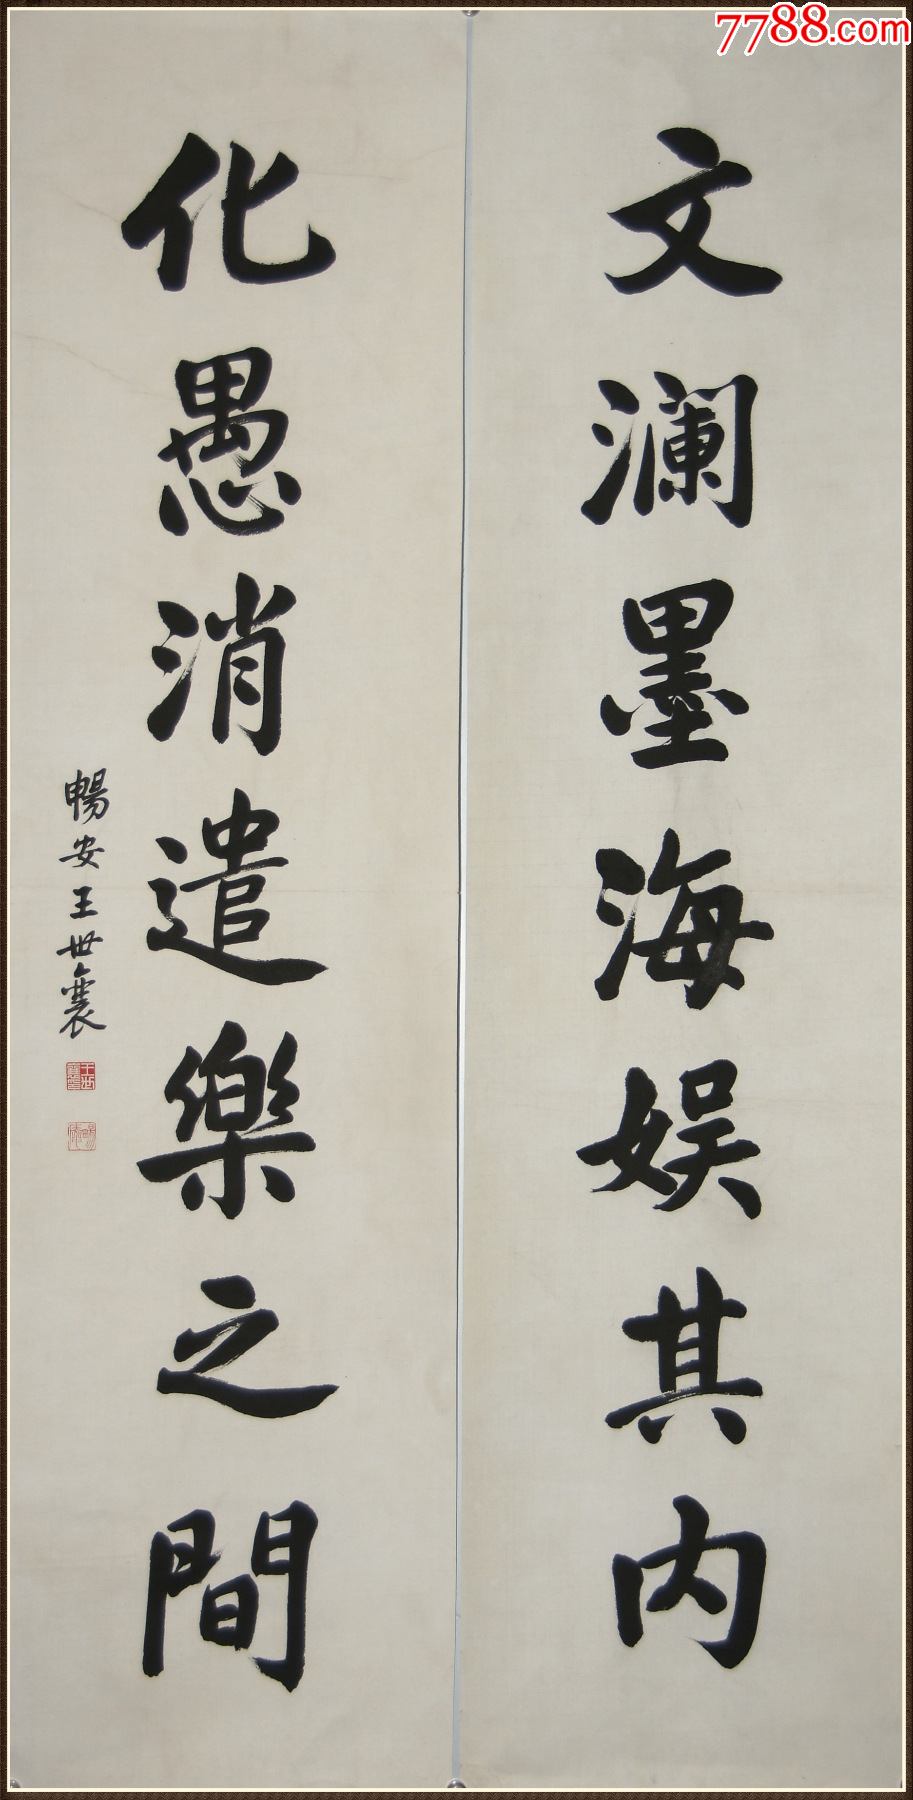 7788.com
文澜墨海娱其内
化愚消遣樂之間
暢安王世襄